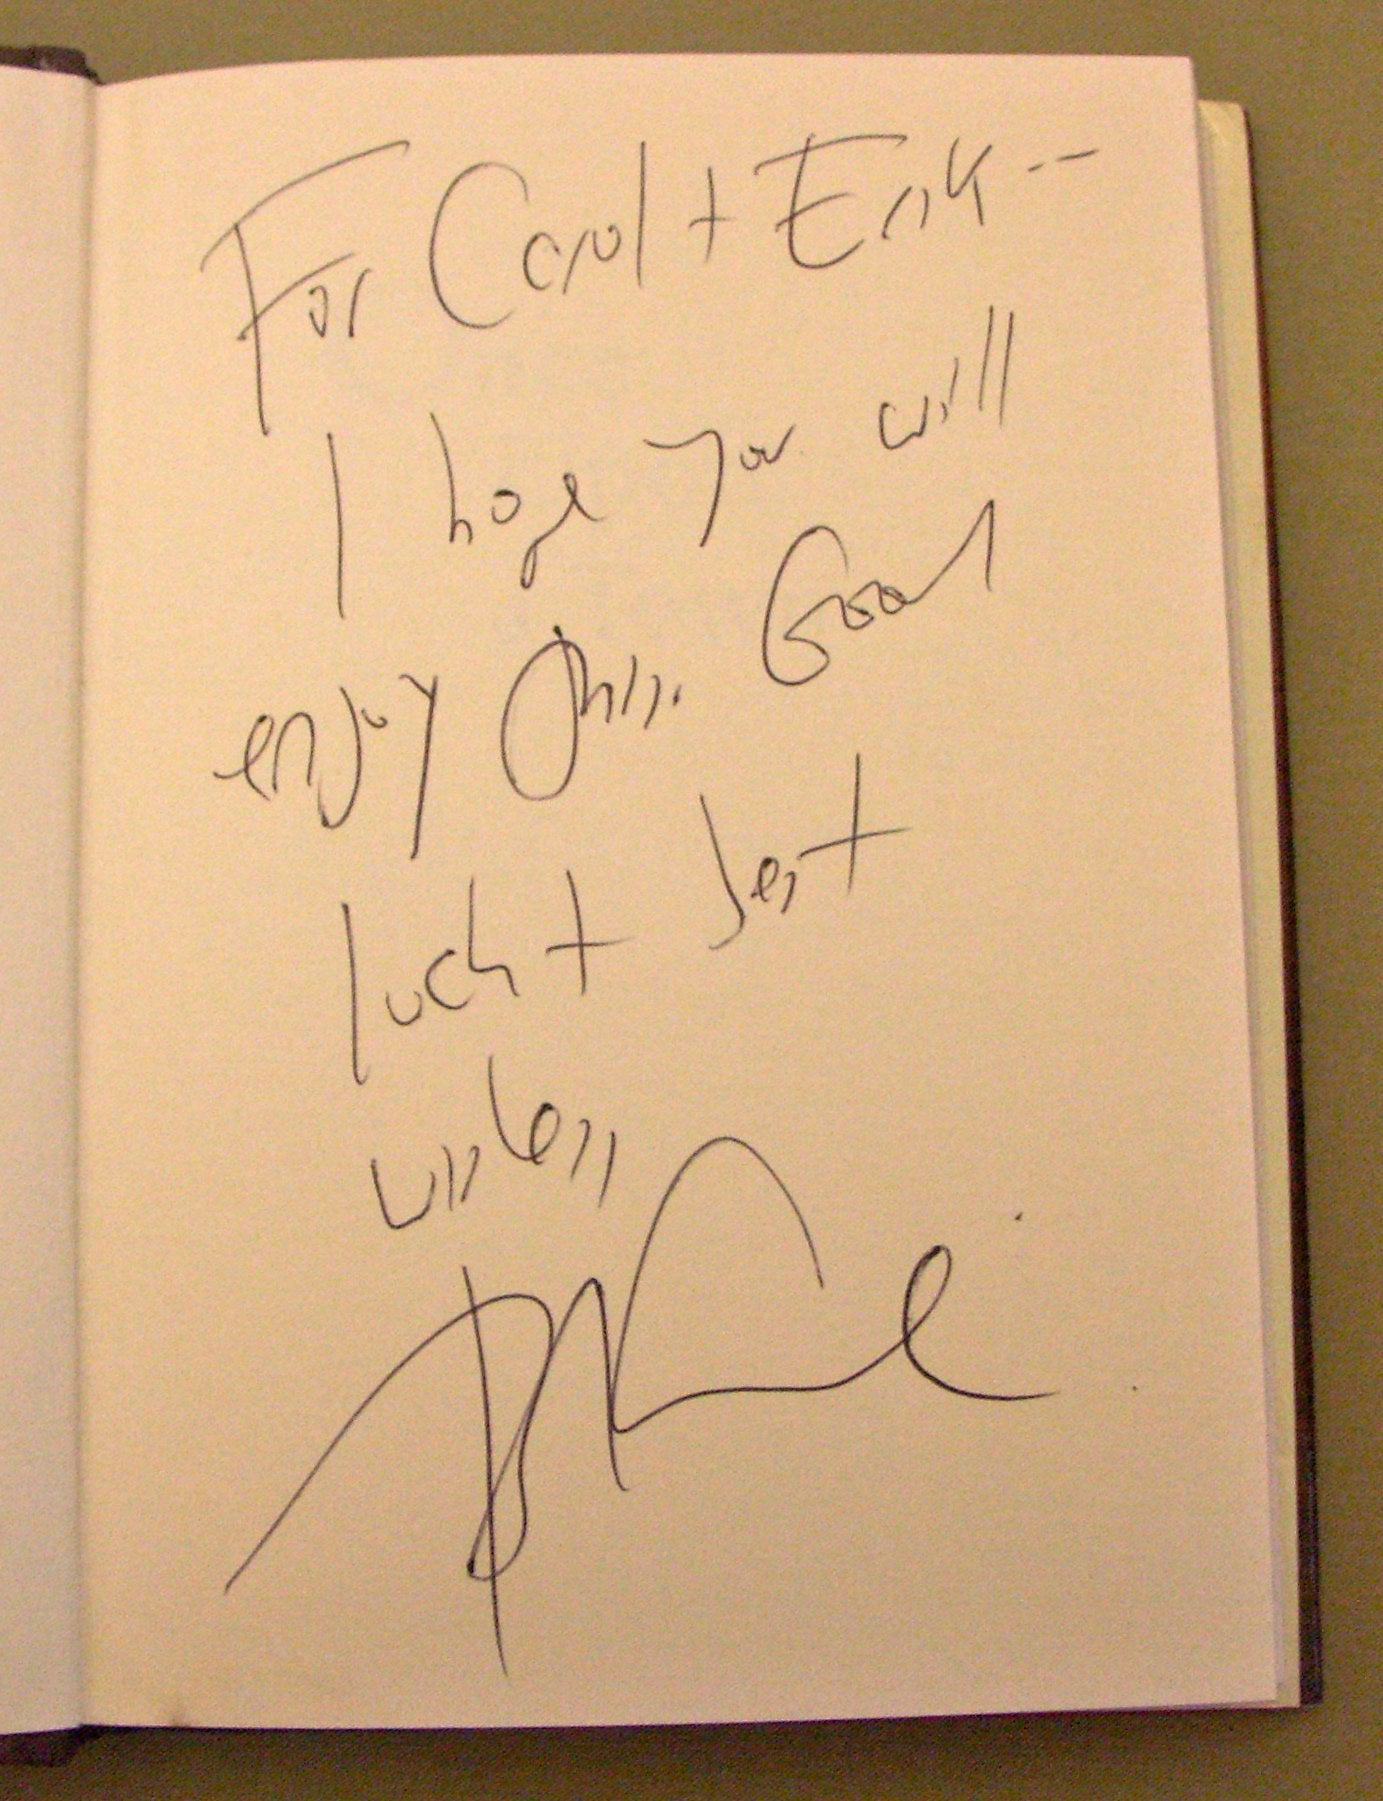 For Carol + Erik --
I hope you will
enjoy this. Good
luck + best
wishes